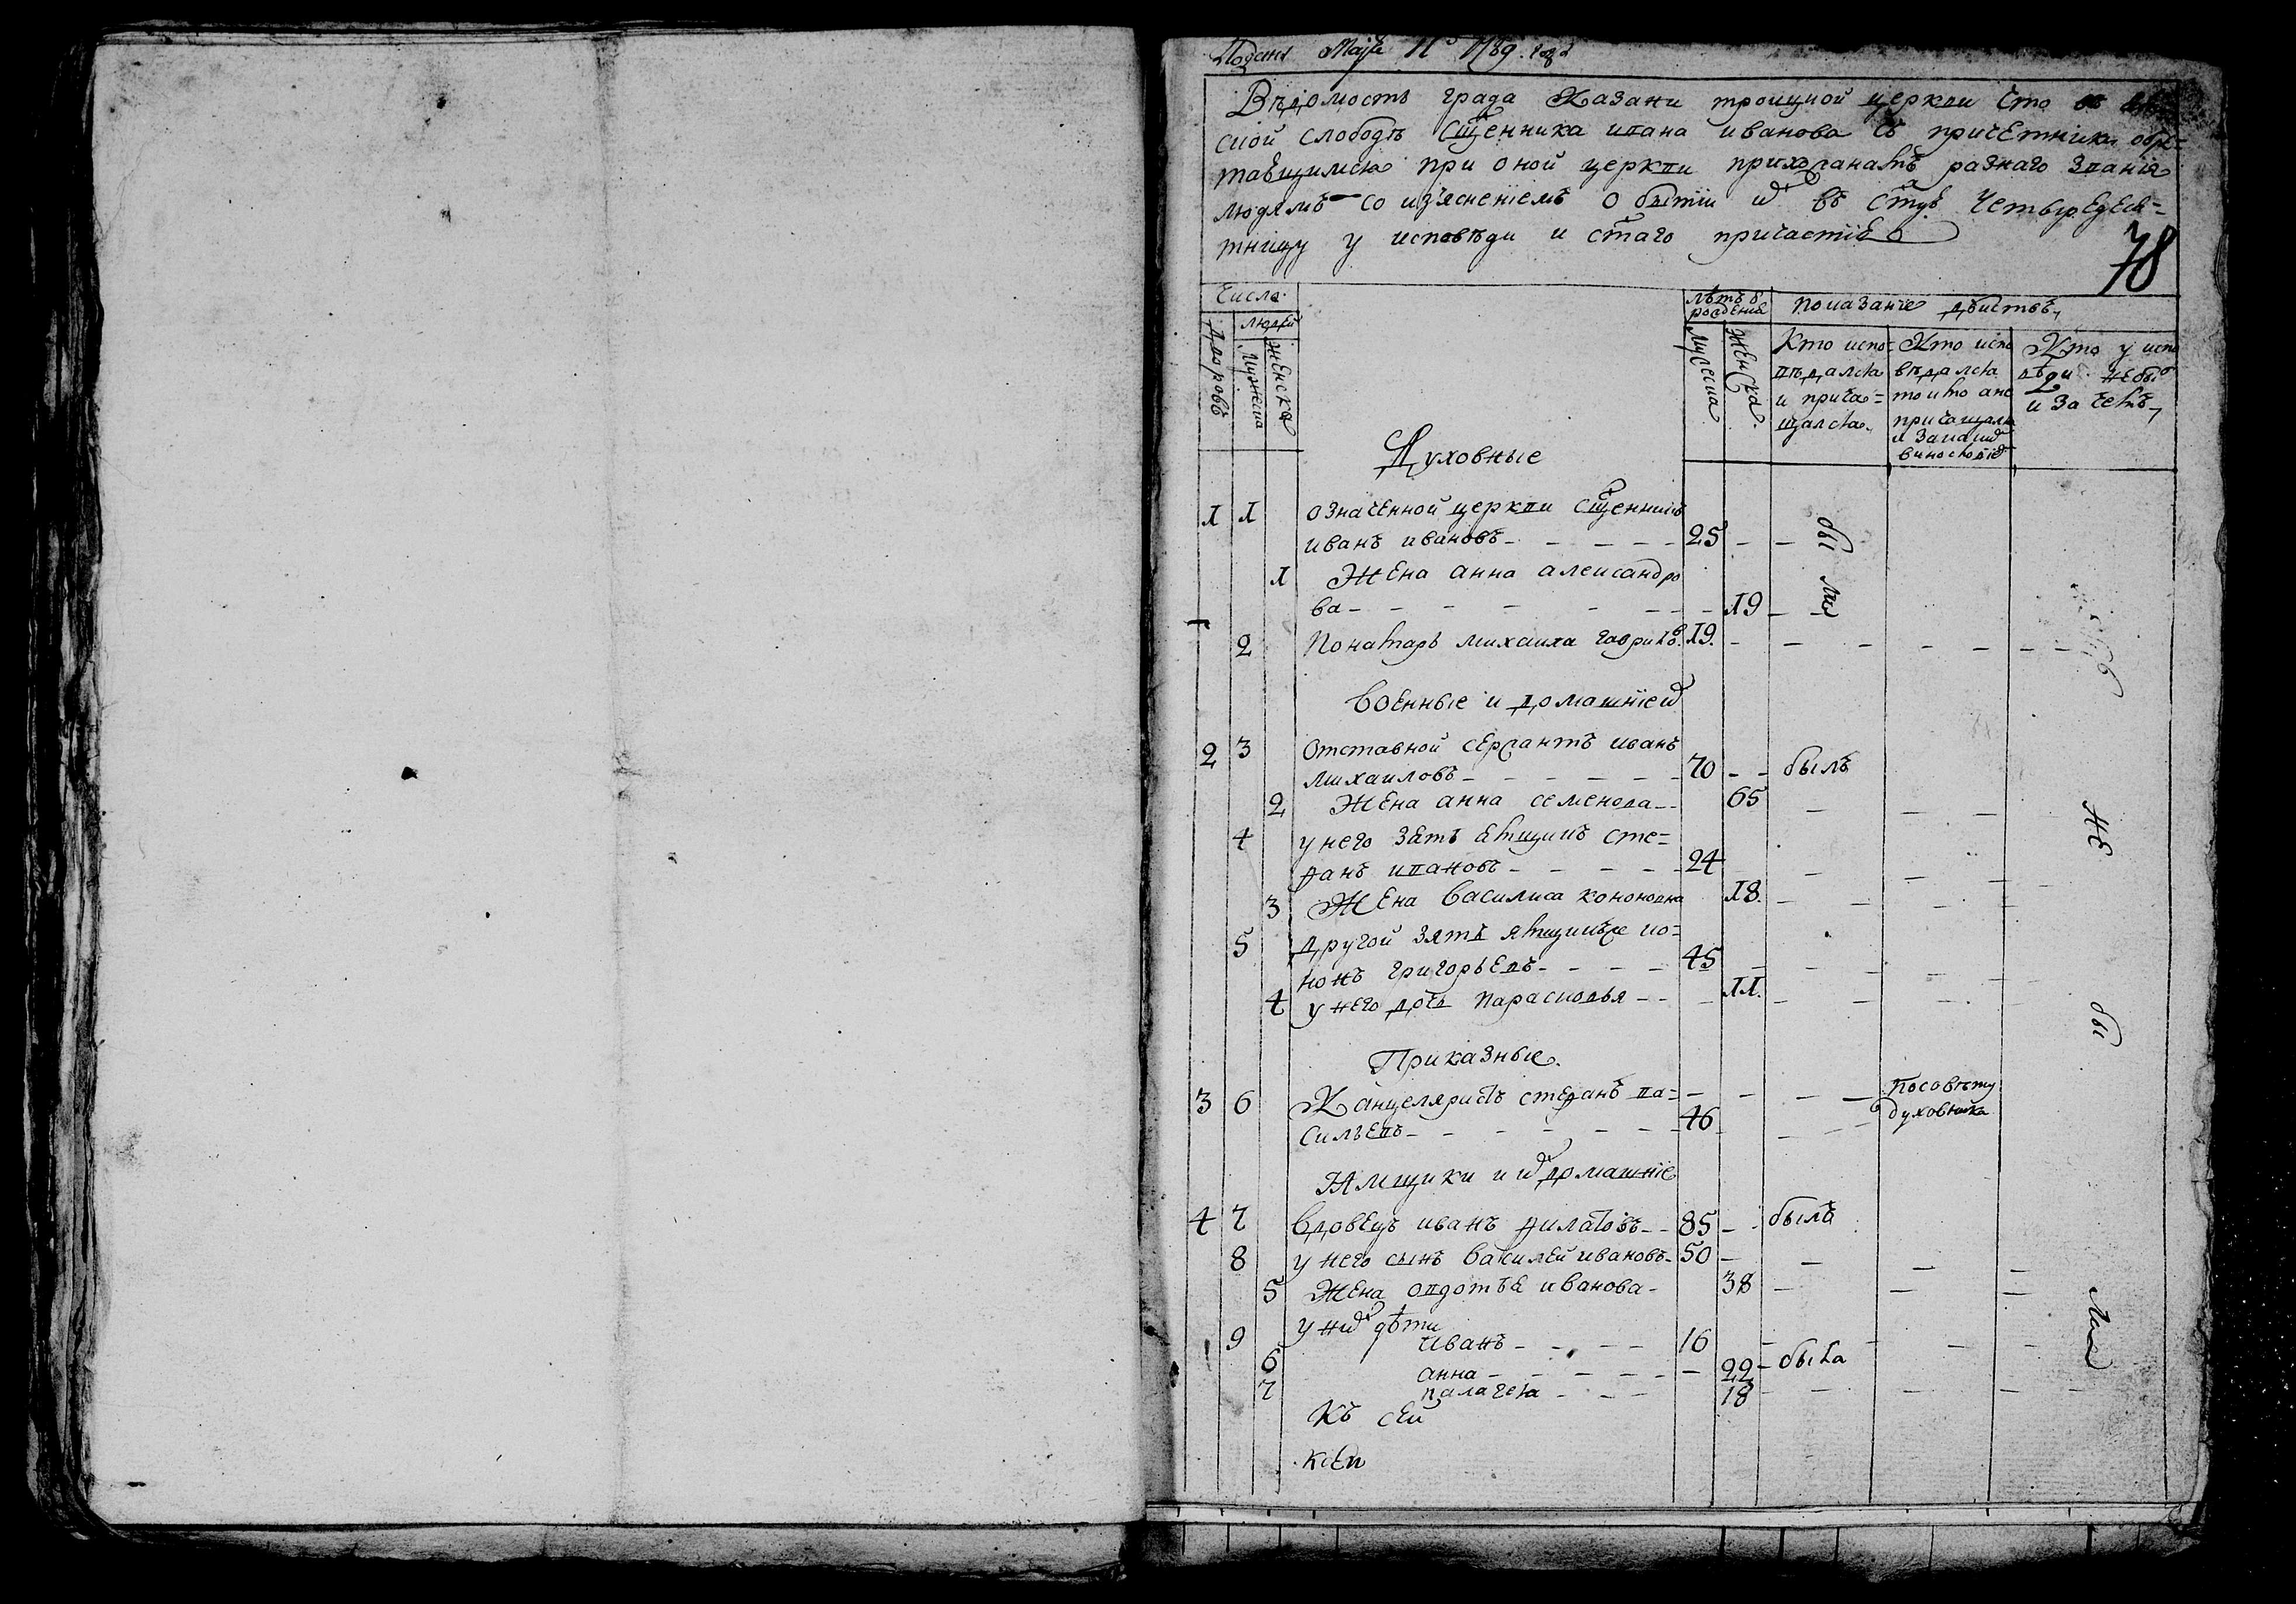 Подана Маїя 11 1789 года
Вѣдомость града Казани троицкой церкви что въ
ской слободѣ сщенника ивана иванова съ причетники обре=
тающимся при оной церкви прихожанамъ разнаго званія
людямъ со изъясненіемъ о бытіи их въ стую четыредеся=
тницу у исповѣди и стаго причастія
78
Числа
лѣтъ ѿ рождения
показание дѣиствъ
дворовъ
людей
мужеска
женска
мужеска
женска
Кто испо=
вѣдался
и прича=
щался
Кто испо
вѣдался
токмо а не
причащалъ
и за каким
винословїе
Кто у испо
вѣди не бы
и за чемъ
Духовные
1 1 означенной церкви сщенникъ
иванъ ивановъ 25 бы
1 Жена анна александро
ва 19 ли
2 Понамарь михаила гаврилв 19
Военные и домашнїе их
2 3 отставной сержантъ иванъ
михаиловъ 70 былъ
2 Жена анна семенова 65
4 у него зять ямщикъ сте=
фанъ ивановъ 24
3 Жена василиса кононовна 18
5 другой зять ямщикъже ко=
нонъ григорьевъ 45
4 у него дочь парасковья 11
Приказные
3 6 Канцеляристъ стефанъ ва= по совѣту
сильевъ 46 духовника
Ямщики и их домашнїе
4 7 вдовецъ иванъ филатовъ 85 былъ
8 у него сынъ василей ивановъ 50
5 Жена овдотья иванова 38
у них дѣти
9 иванъ 16
6 анна 22 была
7 палагея 18
Къ сей
ксеи
не
бы
ли